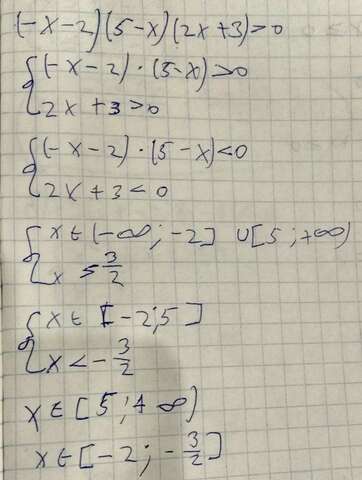 (-x-2)(5-x)(2x+3)>0
{(-x-2)·(5-x)>0
2x+3>0
{(-x-2)·(5-x)<0
2x+3<0
{x∈(-∞;-2] ∪[5;+∞)
x ≥ 3/2
{x∈[-2;5]
x<-3/2
x∈[5;+∞)
x∈[-2;-3/2]